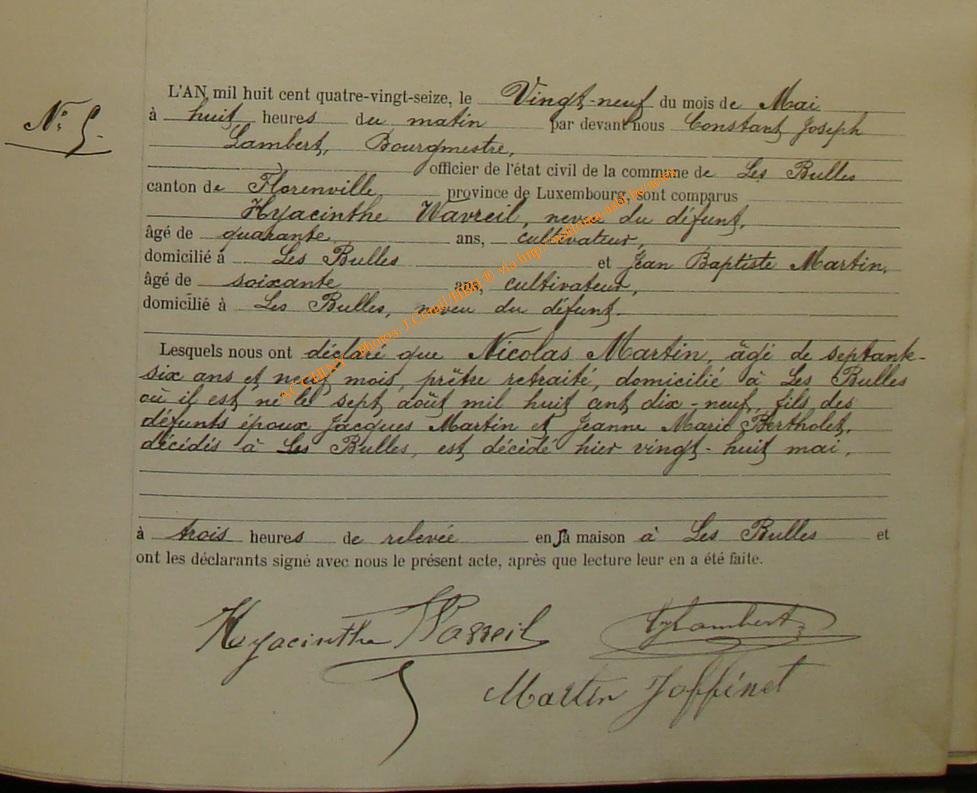 L'AN mil huit cent quatre-vingt-seize, le Vingt-neuf du mois de Mai
N° 5.
à huit heures du matin par devant nous Constant Joseph
Lambert, Bourgmestre,
officier de l'état civil de la commune de Les Bulles
canton de Florenville, province de Luxembourg, sont comparus
Hyacinthe Wavreil, neveu du défunt,
âgé de quarante ans, cultivateur,
domicilié à Les Bulles et Jean Baptiste Martin,
âgé de soixante ans, cultivateur,
domicilié à Les Bulles, neveu du défunt.
Lesquels nous ont déclaré que Nicolas Martin, âgé de septante-
six ans et neuf mois, prêtre retraité, domicilié à Les Bulles
où il est né le sept août mil huit cent dix-neuf, fils des
défunts époux Jacques Martin et Jeanne Marie Bertholet,
décédés à Les Bulles, est décédé hier vingt-huit mai,
à trois heures de relevée en sa maison à Les Bulles et
ont les déclarants signé avec nous le présent acte, après que lecture leur en a été faite.
Hyacinthe Lambert
Martin Joffinet